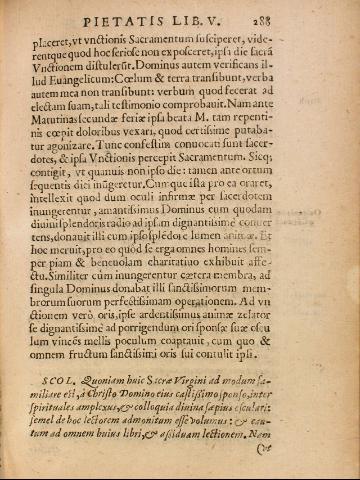 PIETATIS LIB. V. 288
placeret, vt vnctionis Sacramentum susciperet, vide-
rentque quod hoc seriose non exposceret, ipsi die sacrā
Vnctionem distulerūt. Dominus autem verificans il-
lud Euangelicum: Cœlum & terra transibunt, verba
autem mea non transibunt: verbum quod fecerat ad
electam suam, tali testimonio comprobauit. Nam ante
Matutinas secundæ feriæ ipsa beata M. tam repenti-
nis cœpit doloribus vexari, quod certissime putaba-
tur agonizare. Tunc confestim conuocati sunt sacer-
dotes, & ipsa Vnctionis percepit Sacramentum. Sicq;
contigit, vt quamuis non ipso die: tamen ante ortum
sequentis diei inūgeretur. Cumque ista pro ea oraret,
intellexit quod dum oculi infirmæ per sacerdotem
inungerentur, amantissimus Dominus cum quodam
diuini splendoris radio ad ipsam dignantissimè conuer
tens, donauit illi cum ipso splēdore lumen animæ. Et
hoc meruit, pro eo quòd se erga omnes homines sem-
per piam & beneuolam charitatiuo exhibuit affe-
ctu. Similiter cùm inungerentur cætera membra, ad
singula Dominus donabat illi sanctissimorum mem-
brorum suorum perfectissimam operationem. Ad vn
ctionem verò oris, ipse ardentissimus animæ zelator
se dignantissimè ad porrigendum ori sponsæ suæ oscu
lum vincēs mellis poculum coaptauit, cum quo &
omnem fructum sanctissimi oris sui contulit ipsi.
SCOL. Quoniam huic Sacræ Virgini ad modum fa-
miliare est, à Christo Domino eius castissimo sponso, inter
spirituales amplexus, & colloquia diuina sæpius osculari:
semel de hoc lectorem admonitum esse volumus: & cau-
tum ad omnem huius libri, & assiduam lectionem. Nam